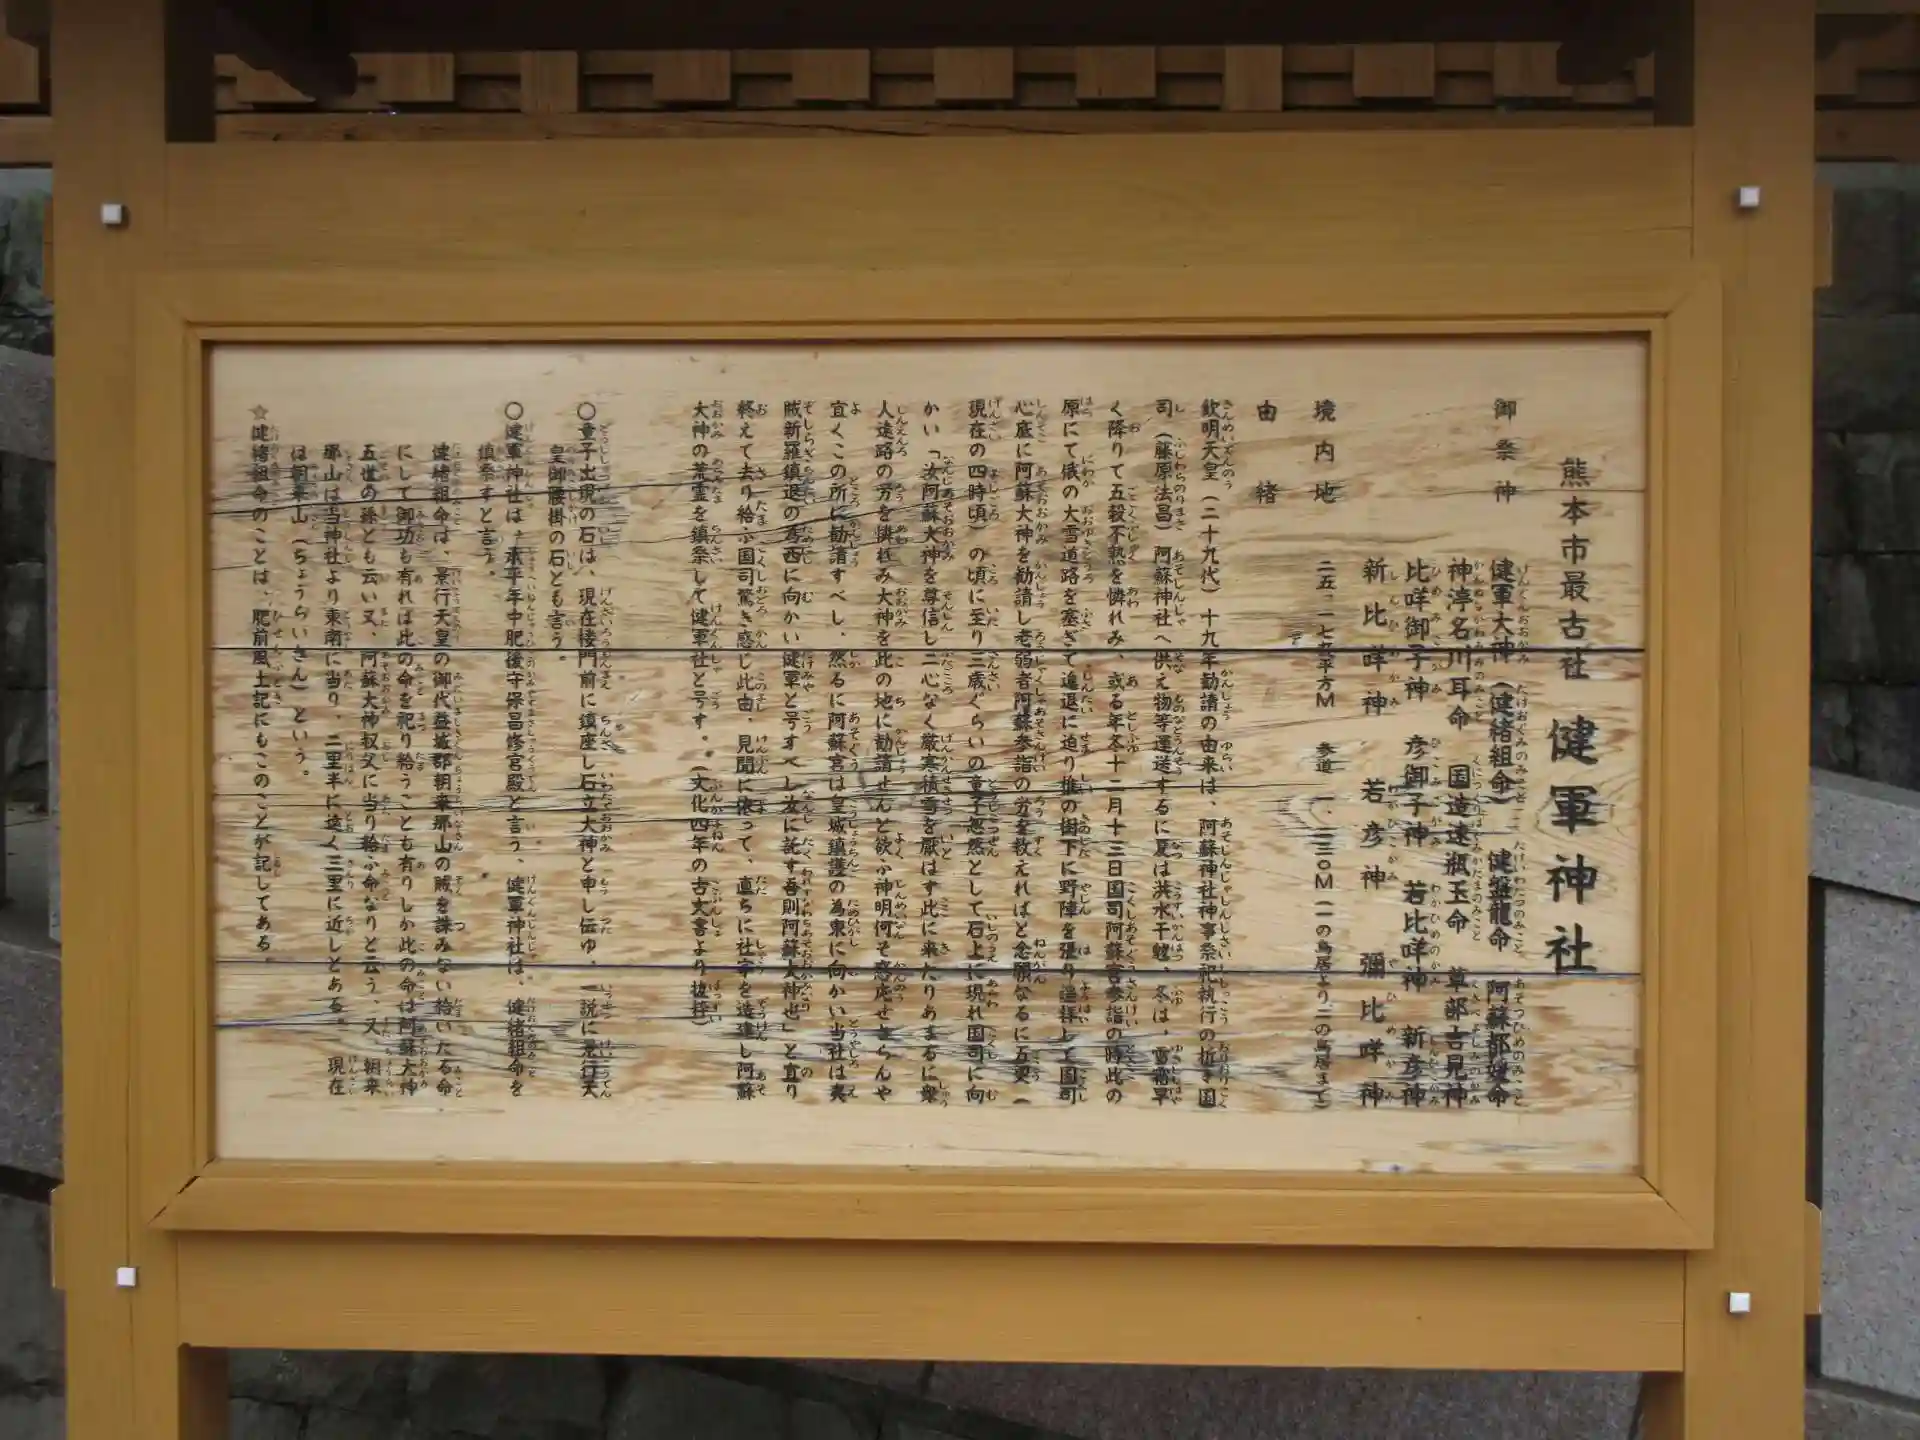 熊本市最古社 健軍神社
御祭神
健軍大神（健緒組命） 健磐龍命 阿蘇都媛命
神渟名川耳命 国造速瓶玉命 草部吉見神
比咩御子神 彦御子神 若比咩神 新彦神
新比咩神 若彦神 彌比咩神
境内地 二五、一七五平方M 参道 一、二三〇M（一の鳥居より二の鳥居まで）
由緒
欽明天皇（二十九代）十九年勧請の由来は、阿蘇神社神事祭祀執行の折き国
司（藤原法昌）阿蘇神社へ供え物等運送するに夏は洪水干魃、冬は、雪霜早
く降りて五穀不熟を憐れみ、或る年冬十二月十三日国司阿蘇宮参詣の時此の
原にて俄の大雪道路を塞ぎて進退に迫り椎の樹下に野障を張り遥拝して国司
心底に阿蘇大神を勧請し老弱者阿蘇参詣の労を救えればと念願なるに五更（
現在の四時頃）の頃に至り三歳ぐらいの童子忽然として石上に現れ国司に向
かい「汝阿蘇大神を尊信し二心なく厳寒積雪を厭はす此に来たりあまるに衆
人遠路の労を憐れみ大神を此の地に勧請せんと欲ふ神明何そ感応せさらんや
宜くこの所に勧請すべし、然るに阿蘇宮は皇城鎮護の為東に向かい当社は夷
賊新羅鎮退の為西に向かい健軍と号すべし汝に託す吾則阿蘇大神也」と宣り
終えて去り給ふ国司驚き感じ此由、見聞に依って、直ちに社宇を造建し阿蘇
大神の荒霊を鎮祭して健軍社と号す。（文化四年の古文書より抜粋）
〇童子出現の石は、現在楼門前に鎮座し石立大神と申し伝ゆ、一説に景行天
皇御腰掛の石とも言う。
〇健軍神社は、承平年中肥後守保昌修宮殿と言う、健軍神社は、健緒組命を
鎮祭すと言う。
健緒組命は、景行天皇の御代益城郡朝来那山の賊を誅みない給いたる命
にして御功も有れば此の命を祀り給うことも有りしか此の命は阿蘇大神
五世の孫とも云い又、阿蘇大神叔父に当り給ふ命なりと云う、又 朝来
那山は当神社より東南に当り、二里半に遠く三里に近しとある。 現在
は朝来山（ちょうらいさん）という。
☆健緒組命のことは、肥前風土記にもこのことが記してある。